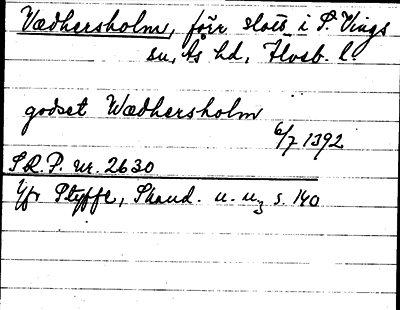 Vædhersholm, förr slott i S. Vings
sn, Ås hd, Älvsb. l.
godset Wædhersholm
6/7 1392
S.R.P. nr. 2630
Jfr Styffe, Skand. u. u₃ s. 140